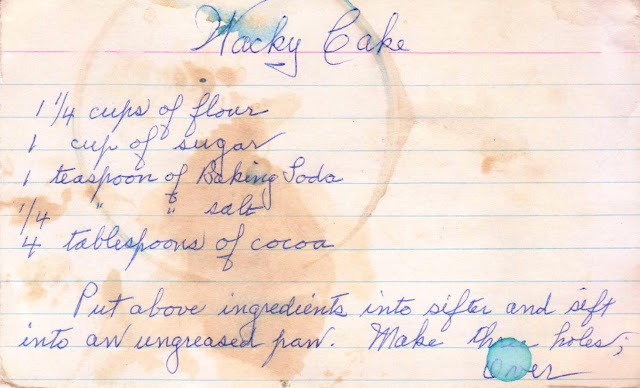 Wacky Cake
1 1/4 cups of flour
1 cup of sugar
1 teaspoon of Baking Soda
1/4 " " salt
4 tablespoons of cocoa
Put above ingredients into sifter and sift
into an ungreased pan. Make three holes;
Over